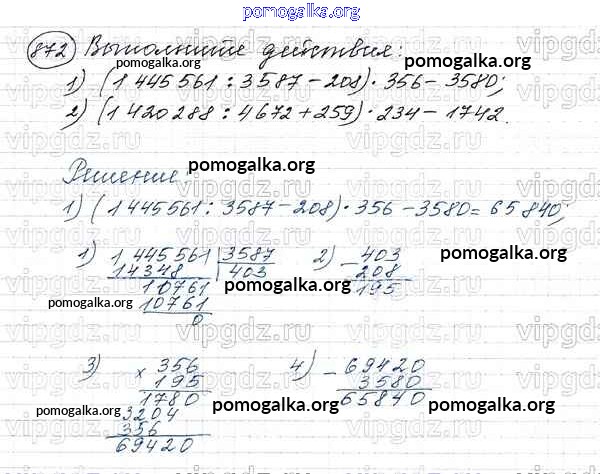 pomogalka.org
872 Выполните действия:
1) (1 445 561 : 3587 - 208) · 356 - 3580;
2) (1 420 288 : 4672 + 259) · 234 - 1742.
pomogalka.org
Решение:
pomogalka.org
1) (1 445 561 : 3587 - 208) · 356 - 3580 = 65 840;
1) 1 445 561 | 3587
14348 403
10761
10761
0
2) - 403
208
195
pomogalka.org
pomogalka.org
pomogalka.org
3) × 356
195
1780
3204
356
69420
4) - 69420
3580
65840
pomogalka.org
pomogalka.org
pomogalka.org
vipgdz.ru